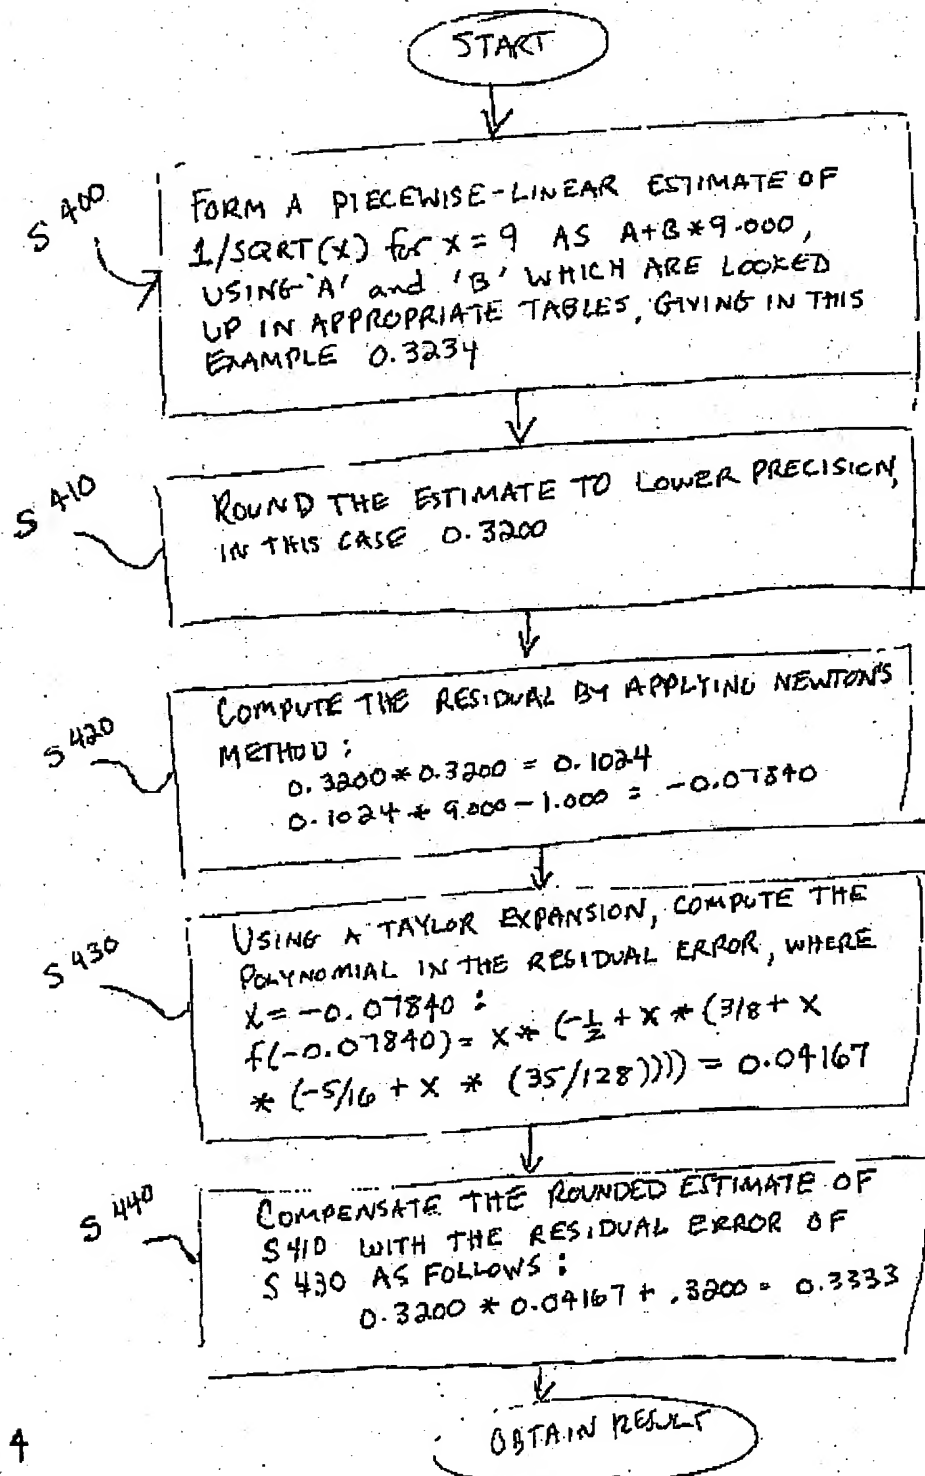 START
S 400
FORM A PIECEWISE-LINEAR ESTIMATE OF
1/SQRT(X) for x = 9 AS A+B*9.000,
USING 'A' and 'B' WHICH ARE LOOKED
UP IN APPROPRIATE TABLES, GIVING IN THIS
EXAMPLE 0.3234
S 410
ROUND THE ESTIMATE TO LOWER PRECISION,
IN THIS CASE 0.3200
S 420
COMPUTE THE RESIDUAL BY APPLYING NEWTON'S
METHOD:
0.3200 * 0.3200 = 0.1024
0.1024 * 9.000 - 1.000 = -0.07840
S 430
USING A TAYLOR EXPANSION, COMPUTE THE
POLYNOMIAL IN THE RESIDUAL ERROR, WHERE
X = -0.07840:
f(-0.07840) = X * (-1/2 + X * (3/8 + X
* (-5/16 + X * (35/128)))) = 0.04167
S 440
COMPENSATE THE ROUNDED ESTIMATE OF
S410 WITH THE RESIDUAL ERROR OF
S 430 AS FOLLOWS:
0.3200 * 0.04167 + .3200 = 0.3333
OBTAIN RESULT
4